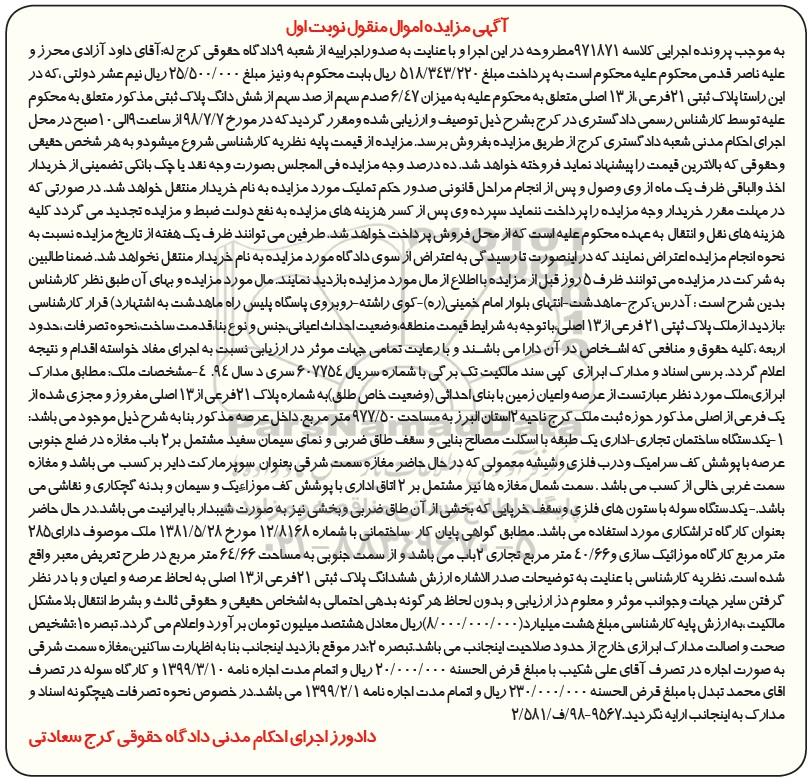 آگهی مزایده اموال منقول نوبت اول
به موجب پرونده اجرایی کلاسه ۹۷۱۸۷۱مطروحه در این اجرا و با عنایت به صدوراجراییه از شعبه ۹دادگاه حقوقی کرج له:آقای داود آزادی محرز و
علیه ناصر قدمی محکوم علیه محکوم است به پرداخت مبلغ ۵۱۸/۳۴۳/۲۲۰ ریال بابت محکوم به ونیز مبلغ ۲۵/۵۰۰/۰۰۰ ریال نیم عشر دولتی ،که در
این راستا پلاک ثبتی ۲۱فرعی ،از ۱۳ اصلی متعلق به محکوم علیه به میزان ۶/۴۷ صدم سهم از صد سهم از شش دانگ پلاک ثبتی مذکور متعلق به محکوم
علیه توسط کارشناس رسمی دادگستری در کرج بشرح ذیل توصیف و ارزیابی شده ومقرر گردید که در مورخ ۹۸/۷/۷ از ساعت ۹الی ۱۰صبح در محل
اجرای احکام مدنی شعبه دادگستری کرج از طریق مزایده بفروش برسد. مزایده از قیمت پایه نظریه کارشناسی شروع میشودو به هر شخص حقیقی
وحقوقی که بالاترین قیمت را پیشنهاد نماید فروخته خواهد شد. ده درصد وجه مزایده فی المجلس بصورت وجه نقد یا چک بانکی تضمینی از خریدار
اخذ والباقی ظرف یک ماه از وی وصول و پس از انجام مراحل قانونی صدور حکم تملیک مورد مزایده به نام خریدار منتقل خواهد شد. در صورتی که
در مهلت مقرر خریدار وجه مزایده را پرداخت ننماید سپرده وی پس از کسر هزینه های مزایده به نفع دولت ضبط و مزایده تجدید می گردد کلیه
هزینه های نقل و انتقال به عهده محکوم علیه است که از محل فروش پرداخت خواهد شد. طرفین می توانند ظرف یک هفته از تاریخ مزایده نسبت به
نحوه انجام مزایده اعتراض نمایند که در اینصورت تا رسیدگی به اعتراض از سوی دادگاه مورد مزایده به نام خریدار منتقل نخواهد شد. ضمنا طالبین
به شرکت در مزایده می توانند ظرف ۵ روز قبل از مزایده با اطلاع از مال مورد مزایده بازدید نمایند. مال مورد مزایده و بهای آن طبق نظر کارشناس
بدین شرح است : آدرس:کرج-ماهدشت-انتهای بلوار امام خمینی(ره)-کوی راشته-روبروی پاسگاه پلیس راه ماهدشت به اشتهارد) قرار کارشناسی
:بازدید از ملک پلاک ثبتی ۲۱ فرعی از ۱۳ اصلی،با توجه به شرایط قیمت منطقه،وضعیت احداث اعیانی،جنس و نوع بنا،قدمت ساخت،نحوه تصرفات ،حدود
اربعه ،کلیه حقوق و منافعی که اشخاص در آن دارا می باشند و با رعایت تمامی جهات موثر در ارزیابی نسبت به اجرای مفاد خواسته اقدام و نتیجه
اعلام گردد. برسی اسناد و مدارک ابرازی کپی سند مالکیت تک برگی با شماره سریال ۶۰۷۷۵۴ سری د سال ۹۴. ۴-مشخصات ملک: مطابق مدارک
ابرازی،ملک مورد نظر عبارتست از عرصه واعیان زمین با بنای احداثی (وضعیت خاص طلق)به شماره پلاک ۲۱فرعی از۱۳ اصلی مفروز و مجزی شده از
یک فرعی از اصلی مذکور حوزه ثبت ملک کرج ناحیه ۲استان البرز به مساحت ۹۷۷/۵۰ متر مربع. داخل عرصه مذکور بنا به شرح ذیل موجود می باشد:
۱-یکدستگاه ساختمان تجاری-اداری یک طبقه با اسکلت مصالح بنایی و سقف طاق ضربی و نمای سیمان سفید مشتمل بر ۲ باب مغازه در ضلع جنوبی
عرصه با پوشش کف سرامیک و درب فلزی و شیشه معمولی که در حال حاضر مغازه سمت شرقی بعنوان سوپرمارکت دایر بر کسب می باشد و مغازه
سمت غربی خالی از کسب می باشد . سمت شمال مغازه ها نیز مشتمل بر ۲ اتاق اداری با پوشش کف موزاءیک و سیمان و بدنه گچکاری و نقاشی می
باشد.- یکدستگاه سوله با ستون های فلزی و سقف خرپایی که بخشی از آن طاق ضربی وبخشی نیز به صورت شیبدار با ایرانیت می باشد.در حال حاضر
بعنوان کارگاه تراشکاری مورد استفاده می باشد. مطابق گواهی پایان کار ساختمانی با شماره ۱۲/۸۱۶۸ مورخ ۱۳۸۱/۵/۲۸ ملک موصوف دارای۲۸۵
متر مربع کارگاه موزائیک سازی و ۴۰/۶۶ متر مربع تجاری ۲باب می باشد و از سمت جنوبی به مساحت ۶۴/۶۶ متر مربع در طرح تعریض معبر واقع
شده است. نظریه کارشناسی با عنایت به توضیحات صدر الاشاره ارزش ششدانگ پلاک ثبتی ۲۱فرعی از۱۳ اصلی به لحاظ عرصه و اعیان و با در نظر
گرفتن سایر جهات وجوانب موثر و معلوم در ارزیابی و بدون لحاظ هرگونه بدهی احتمالی به اشخاص حقیقی و حقوقی ثالث و بشرط انتقال بلا مشکل
مالکیت ،به ارزش پایه کارشناسی مبلغ هشت میلیارد(۸/۰۰۰/۰۰۰/۰۰۰)ریال معادل هشتصد میلیون تومان برآورد واعلام می گردد. تبصره ۱:تشخیص
صحت و اصالت مدارک ابرازی خارج از حدود صلاحیت اینجانب می باشد.تبصره ۲:در موقع بازدید اینجانب بنا به اظهارت ساکنین،مغازه سمت شرقی
به صورت اجاره در تصرف آقای علی شکیب با مبلغ قرض الحسنه ۲۰/۰۰۰/۰۰۰ ریال و اتمام مدت اجاره نامه ۱۳۹۹/۳/۱۰ و کارگاه سوله در تصرف
اقای محمد تبدل با مبلغ قرض الحسنه ۲۳۰/۰۰۰/۰۰۰ ریال و اتمام مدت اجاره نامه ۱۳۹۹/۲/۱ می باشد.در خصوص نحوه تصرفات هیچگونه اسناد و
مدارک به اینجانب ارایه نگردید.۹۵۶۷-۹۸/ف/۲/۵۸۱
دادورز اجرای احکام مدنی دادگاه حقوقی کرج سعادتی